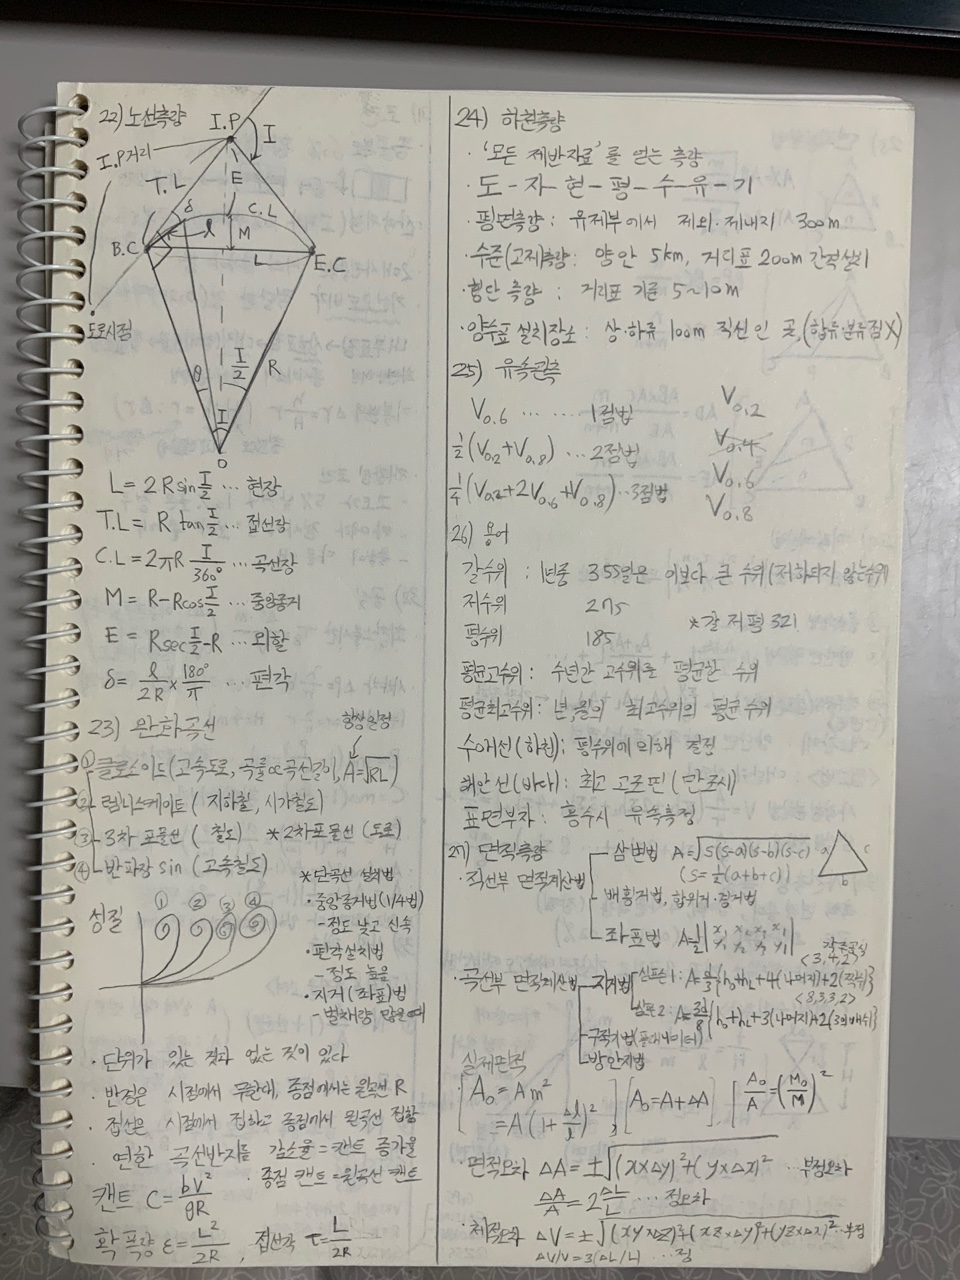 22) 노선측량
I.P
I
I.P거리
T.L
E
δ
C.L
l
M
B.C
L
E.C
도로시점
θ
I/2
R
I
O
L = 2Rsin I/2 … 현장
T.L = R tan I/2 … 접선장
C.L = 2πR I/360° … 곡선장
M = R-Rcos I/2 … 중앙종거
E = Rsec I/2 - R … 외할
δ = l/2R × 180°/π … 편각
23) 완화곡선
항상일정
① 클로소이드 (고속도로, 곡률∝곡선길이, A=√RL)
② 렘니스케이트 (지하철, 시가철도)
③ 3차 포물선 (철도) *2차포물선 (도로)
④ 반파장 sin (고속철도)
*단곡선 설치법
·중앙종거법 (1/4법)
- 정도 낮고 신속
·편각설치법
- 정도 높음
·지거(좌표)법
- 벌채량
성질
① ② ③ ④
· 단위가 있는 것과 없는 것이 있다
· 반경은 시점에서 무한대, 종점에서는 원곡선 R
· 접선은 시점에서 접하고 종점에서 원곡선 접함
· 연한 곡선반지름 감소율 = 캔트 증가율
· 종점 캔트 = 원곡선 캔트
캔트 C = bV²/gR
확폭량 ε = L²/2R , 접선각 τ = L/2R
24) 하천측량
· '모든 제반자료'를 얻는 측량
· 도-자-현-평-수-유-기
· 평면측량 : 유제부에서 제외·제내지 300m
· 수준(고저)측량 : 양안 5km, 거리표 200m 간격설치
· 횡단 측량 : 거리표 기준 5~10m
· 양수표 설치장소 : 상·하류 100m 직선인 곳, (합류·분류점X)
25) 유속관측
V0.6 …… 1점법
½(V0.2+V0.8) … 2점법
¼(V0.2+2V0.6+V0.8) … 3점법
V0.2
V0.4
V0.6
V0.8
26) 용어
갈수위 : 1년중 355일은 이보다 큰 수위 (저하되지 않는수위)
저수위 275
평수위 185
*갈 저 평 321
평균고수위 : 수년간 고수위로 평균한 수위
평균최고수위 : 년,월의 최고수위의 평균 수위
수애선(하천) : 평수위에 의해 결정
해안선(바다) : 최고 고조면 (만조시)
표면부자 : 홍수시 유속측정
27) 면적측량
· 직선부 면적계산법
삼변법 A=√S(S-a)(S-b)(S-c)
(S=½(a+b+c))
a
b
c
배횡거법, 합위거·합경거
좌표법 A=½|x₁ x₂ x₃ x₁ / y₁ y₂ y₃ y₁|
각주공식
<3,4,2>
· 곡선부 면적계산법
지거법
심프슨1: A=d/3{h₀+hₙ+4(나머지)+2(짝수)}
<8,3,3,2>
심프슨2: A=3d/8{h₀+hₙ+3(나머지)+2(3의배수)}
구적기법(플래니미터)
방안지법
실제면적
[A₀ = Am² = A(1+Δl/l)²], [A₀=A+ΔA], [A₀/A=(M₀/M)²]
· 면적오차 ΔA=±√(x×Δy)²+(y×Δx)² … 부정오차
ΔA/A = 2 ΔL/L … 정오차
· 체적오차 ΔV=±√(xy×Δz)²+(xz×Δy)²+(yz×Δx)² … 부정
ΔV/V = 3(ΔL/L) … 정